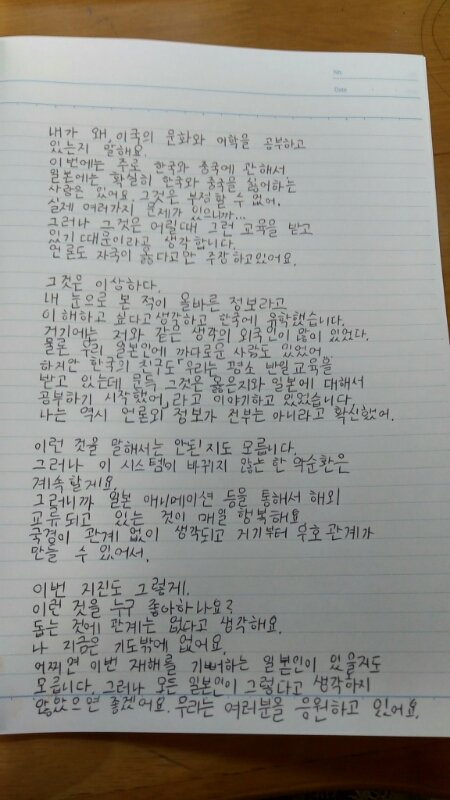 No.
Date
내가 왜, 이국의 문화와 어학을 공부하고
있는지 말해요.
이번에는 주로 한국와 중국에 관해서
일본에는 확실히 한국와 중국을 싫어하는
사람은 있어요 그것은 부정할 수 없어.
실제 여러가지 문제가 있으니까...
그러나 그것은 어릴때 그런 교육을 받고
있기 때문이라고 생각합니다.
언론도 자국이 옳다고만 주장하고있어요.
그것은 이상하다.
내 눈으로 본 적이 올바른 정보라고
이해하고 싶다고 생각하고 한국에 유학했습니다.
거기에는 저와 같은 생각의 외국인이 많이 있었다.
물론 우리 일본인에 까다로운 사람도 있었어
하지만 한국의 친구도 "우리는 평소 반일교육을
받고 있는데 문득 그것은 옳은지와 일본에 대해서
공부하기 시작했어,라고 이야기하고 있었습니다.
나는 역시 언론의 정보가 전부는 아니라고 확신했어.
이런 것을 말해서는 안된지도 모릅니다.
그러나 이 시스템이 바뀌지 않는 한 악순환은
계속할게요.
그러니까 일본 애니메이션 등을 통해서 해외
교류되고 있는 것이 매일 행복해요
국경이 관계 없이 생각되고 거기부터 우호관계가
만들 수 있어서.
이번 지진도 그렇게.
이런 것을 누구 좋아하나요?
돕는 것에 관계는 없다고 생각해요.
나 지금은 기도밖에 없어요.
어쩌면 이번 재해를 기뻐하는 일본인이 있을지도
모릅니다. 그러나 모든 일본인이 그렇다고 생각하지
않았으면 좋겠어요. 우리는 여러분을 응원하고 있어요.